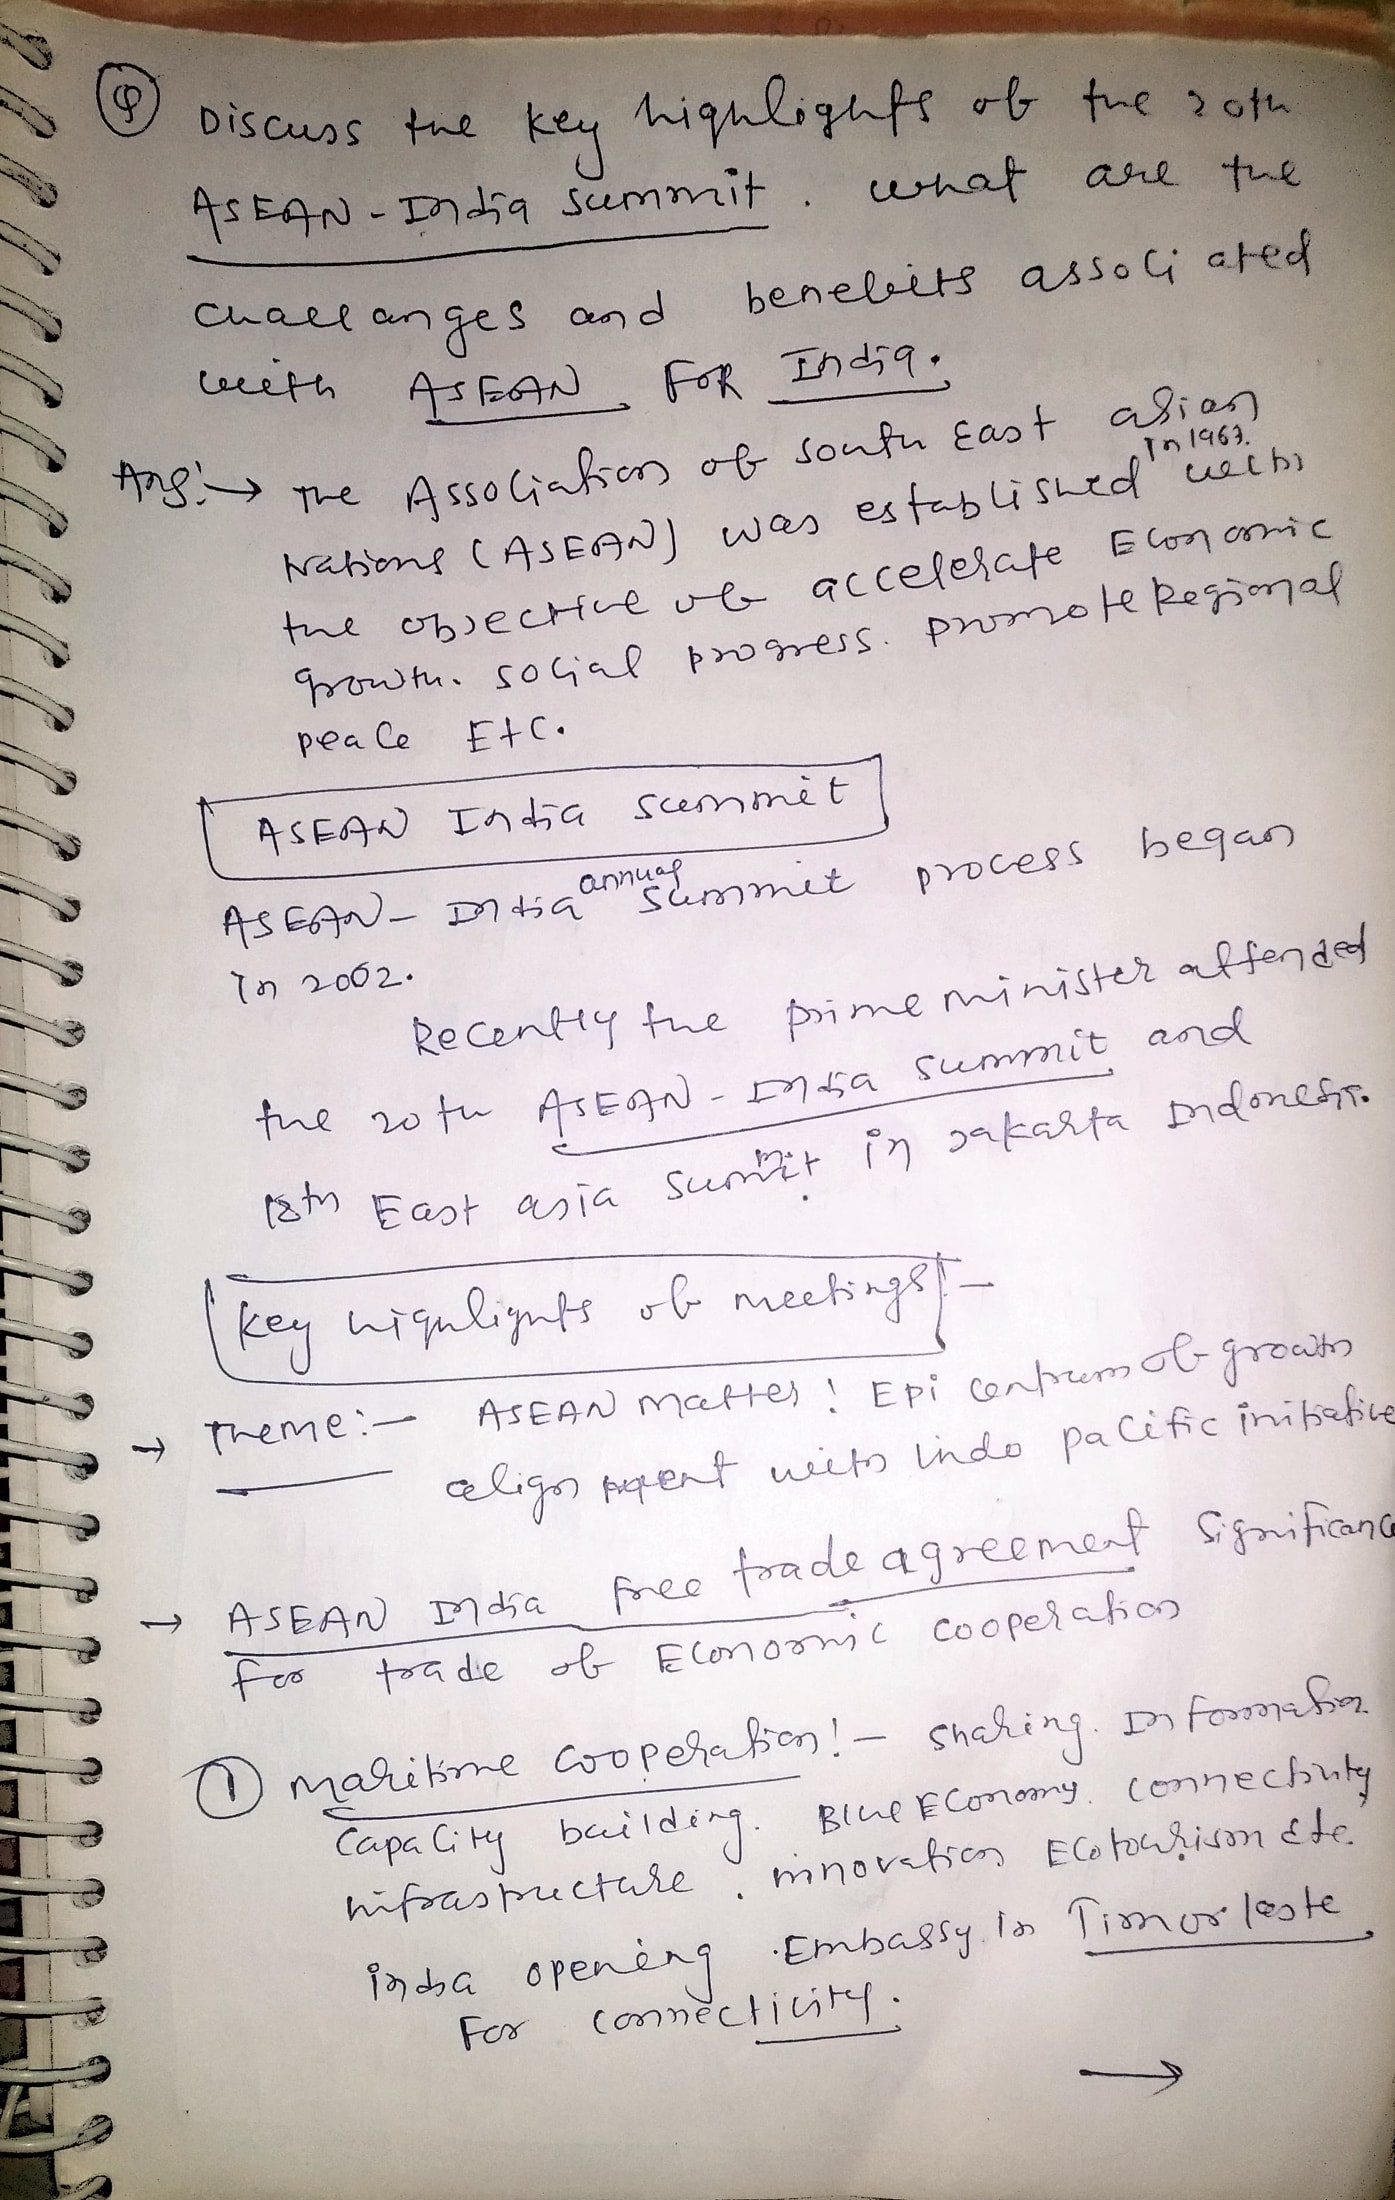 Q Discuss the key highlights of the 20th
ASEAN - India summit. what are the
challanges and benefits associated
with ASEAN FOR India.
Ans:→ The Association of South East asian
Nations (ASEAN) was established in 1967. with
the objective of accelerate Economic
growth. social progress. promote Regional
peace Etc.
ASEAN India summit
ASEAN - India annual summit process began
in 2002.
Recently the prime minister attended
the 20th ASEAN - India summit and
18th East asia summit in Jakarta Indonesia.
key highlights of meetings -
→ Theme:- ASEAN matter! Epi centrum of growth
align with indo pacific initiative
→ ASEAN India free trade agreement Significance
for trade of Economic cooperation
① maritime cooperation! - sharing. Information
capacity building. Blue Economy. connectivity
infrastructure, innovation Ecotourism etc.
india opening Embassy. in Timor leste
For connecticity.
→